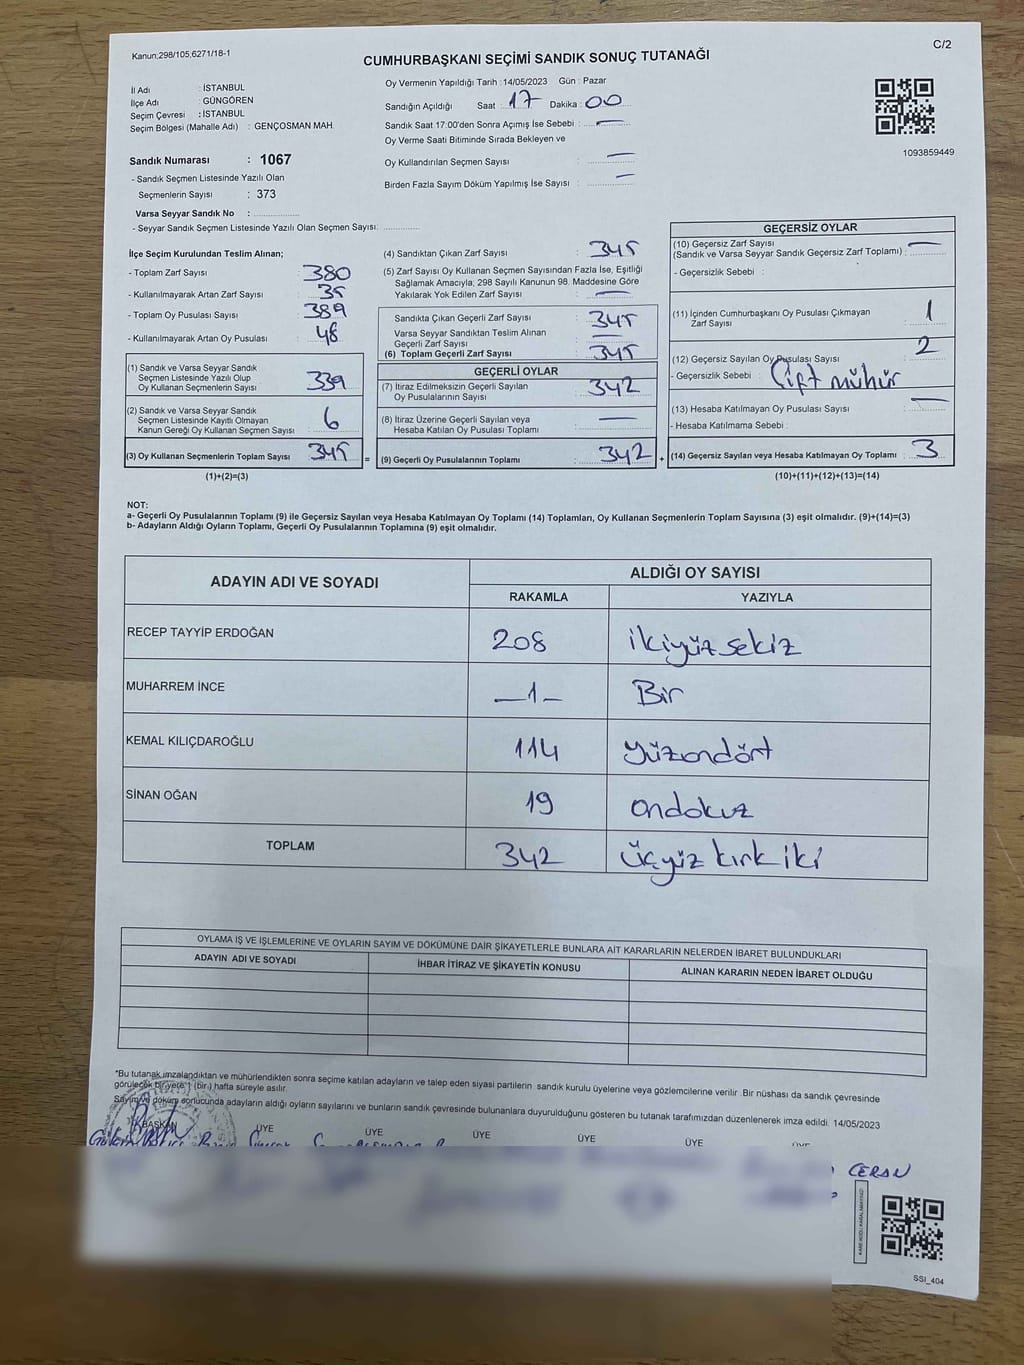 Kanun;298/105,6271/18-1
C/2
CUMHURBAŞKANI SEÇİMİ SANDIK SONUÇ TUTANAĞI
İl Adı : İSTANBUL
İlçe Adı : GÜNGÖREN
Seçim Çevresi : İSTANBUL
Seçim Bölgesi (Mahalle Adı) : GENÇOSMAN MAH.
Sandık Numarası : 1067
- Sandık Seçmen Listesinde Yazılı Olan
Seçmenlerin Sayısı : 373
Varsa Seyyar Sandık No :
- Seyyar Sandık Seçmen Listesinde Yazılı Olan Seçmen Sayısı:
Oy Vermenin Yapıldığı Tarih : 14/05/2023 Gün : Pazar
Sandığın Açıldığı Saat : 17 Dakika : 00
Sandık Saat 17:00'den Sonra Açımış İse Sebebi : —
Oy Verme Saati Bitiminde Sırada Bekleyen ve
Oy Kullandırılan Seçmen Sayısı : —
Birden Fazla Sayım Döküm Yapılmış İse Sayısı : —
1093859449
İlçe Seçim Kurulundan Teslim Alınan;
- Toplam Zarf Sayısı : 380
- Kullanılmayarak Artan Zarf Sayısı : 35
- Toplam Oy Pusulası Sayısı : 389
- Kullanılmayarak Artan Oy Pusulası : 48
(1) Sandık ve Varsa Seyyar Sandık
Seçmen Listesinde Yazılı Olup
Oy Kullanan Seçmenlerin Sayısı : 339
(2) Sandık ve Varsa Seyyar Sandık
Seçmen Listesinde Kayıtlı Olmayan
Kanun Gereği Oy Kullanan Seçmen Sayısı : 6
(3) Oy Kullanan Seçmenlerin Toplam Sayısı : 345
(1)+(2)=(3)
=
(4) Sandıktan Çıkan Zarf Sayısı : 345
(5) Zarf Sayısı Oy Kullanan Seçmen Sayısından Fazla İse, Eşitliği
Sağlamak Amacıyla, 298 Sayılı Kanunun 98. Maddesine Göre
Yakılarak Yok Edilen Zarf Sayısı : —
Sandıkta Çıkan Geçerli Zarf Sayısı : 345
Varsa Seyyar Sandıktan Teslim Alınan
Geçerli Zarf Sayısı : —
(6) Toplam Geçerli Zarf Sayısı : 345
GEÇERLİ OYLAR
(7) İtiraz Edilmeksizin Geçerli Sayılan
Oy Pusulalarının Sayısı : 342
(8) İtiraz Üzerine Geçerli Sayılan veya
Hesaba Katılan Oy Pusulası Toplamı : —
(9) Geçerli Oy Pusulalarının Toplamı : 342
+
GEÇERSİZ OYLAR
(10) Geçersiz Zarf Sayısı
(Sandık ve Varsa Seyyar Sandık Geçersiz Zarf Toplamı) : —
- Geçersizlik Sebebi :
(11) İçinden Cumhurbaşkanı Oy Pusulası Çıkmayan
Zarf Sayısı : 1
(12) Geçersiz Sayılan Oy Pusulası Sayısı : 2
- Geçersizlik Sebebi : Çift mühür
(13) Hesaba Katılmayan Oy Pusulası Sayısı : —
- Hesaba Katılmama Sebebi :
(14) Geçersiz Sayılan veya Hesaba Katılmayan Oy Toplamı : 3
(10)+(11)+(12)+(13)=(14)
NOT:
a- Geçerli Oy Pusulalarının Toplamı (9) ile Geçersiz Sayılan veya Hesaba Katılmayan Oy Toplamı (14) Toplamları, Oy Kullanan Seçmenlerin Toplam Sayısına (3) eşit olmalıdır. (9)+(14)=(3)
b- Adayların Aldığı Oyların Toplamı, Geçerli Oy Pusulalarının Toplamına (9) eşit olmalıdır.
ADAYIN ADI VE SOYADI
ALDIĞI OY SAYISI
RAKAMLA YAZIYLA
RECEP TAYYİP ERDOĞAN 208 ikiyüz sekiz
MUHARREM İNCE —1— Bir
KEMAL KILIÇDAROĞLU 114 yüzondört
SİNAN OĞAN 19 ondokuz
TOPLAM 342 üçyüz kırk iki
OYLAMA İŞ VE İŞLEMLERİNE VE OYLARIN SAYIM VE DÖKÜMÜNE DAİR ŞİKAYETLERLE BUNLARA AİT KARARLARIN NELERDEN İBARET BULUNDUKLARI
ADAYIN ADI VE SOYADI İHBAR İTİRAZ VE ŞİKAYETİN KONUSU ALINAN KARARIN NEDEN İBARET OLDUĞU
*Bu tutanak imzalandıktan ve mühürlendikten sonra seçime katılan adayların ve talep eden siyasi partilerin sandık kurulu üyelerine veya gözlemcilerine verilir. Bir nüshası da sandık çevresinde
görülecek bir yere 1 (bir) hafta süreyle asılır.
Sayım ve döküm sonucunda adayların aldığı oyların sayılarını ve bunların sandık çevresinde bulunanlara duyurulduğunu gösteren bu tutanak tarafımızdan düzenlenerek imza edildi. 14/05/2023
BAŞKAN ÜYE ÜYE ÜYE ÜYE ÜYE
CERAN
SSI_404